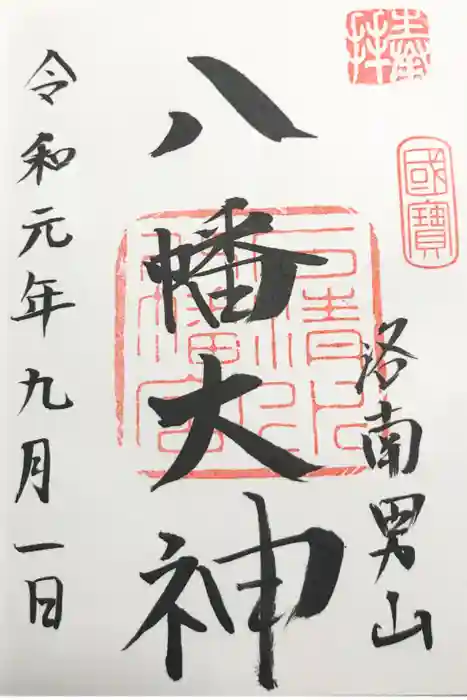 奉拝
國寶
洛南男山
石清水八幡宮
八幡大神
令和元年九月一日